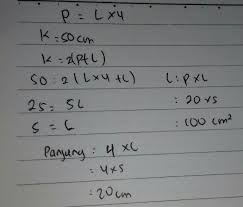 P = L x 4
K = 50 cm
K = 2(P+L)
50 = 2(L x 4 + L)
25 = 5L
5 = L
L : P x L
: 20 x 5
: 100 cm²
Panjang : 4 x L
: 4 x 5
: 20 cm